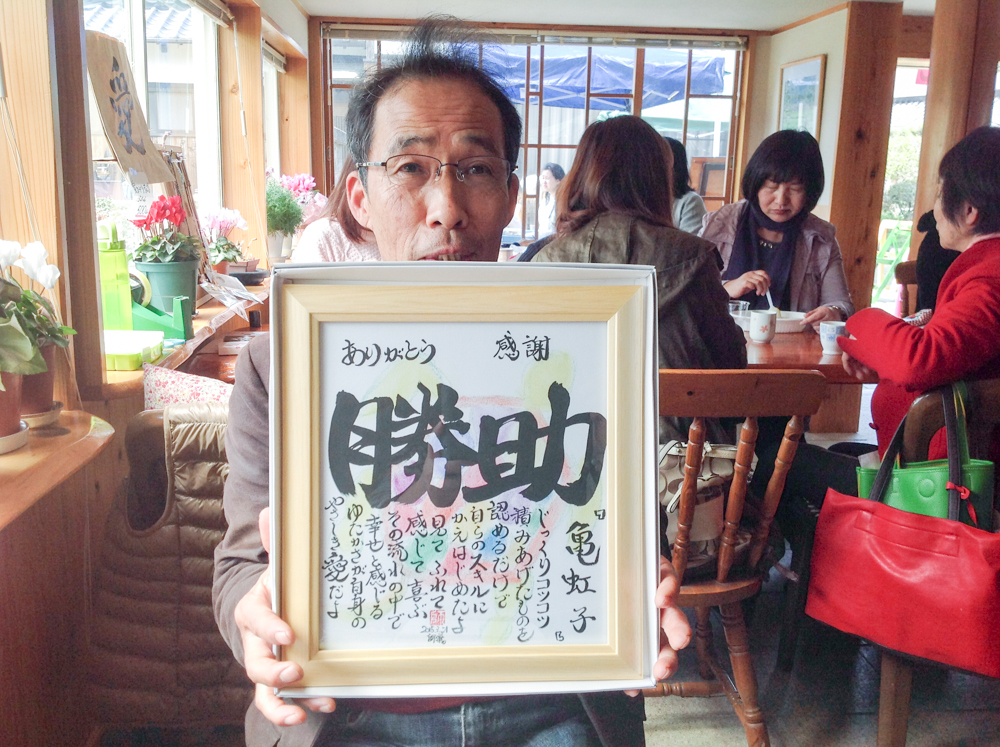 愛
ありがとう 感謝
勝助
「亀虹子」
じっくりコツコツ
積みあげたものを
認めるだけで
自らのスキルに
かえはじめたよ
見て ふれて
感じて 喜ぶ
その流れの中で
幸せと感じる
ゆたかさが自身の
やさしき愛だよ